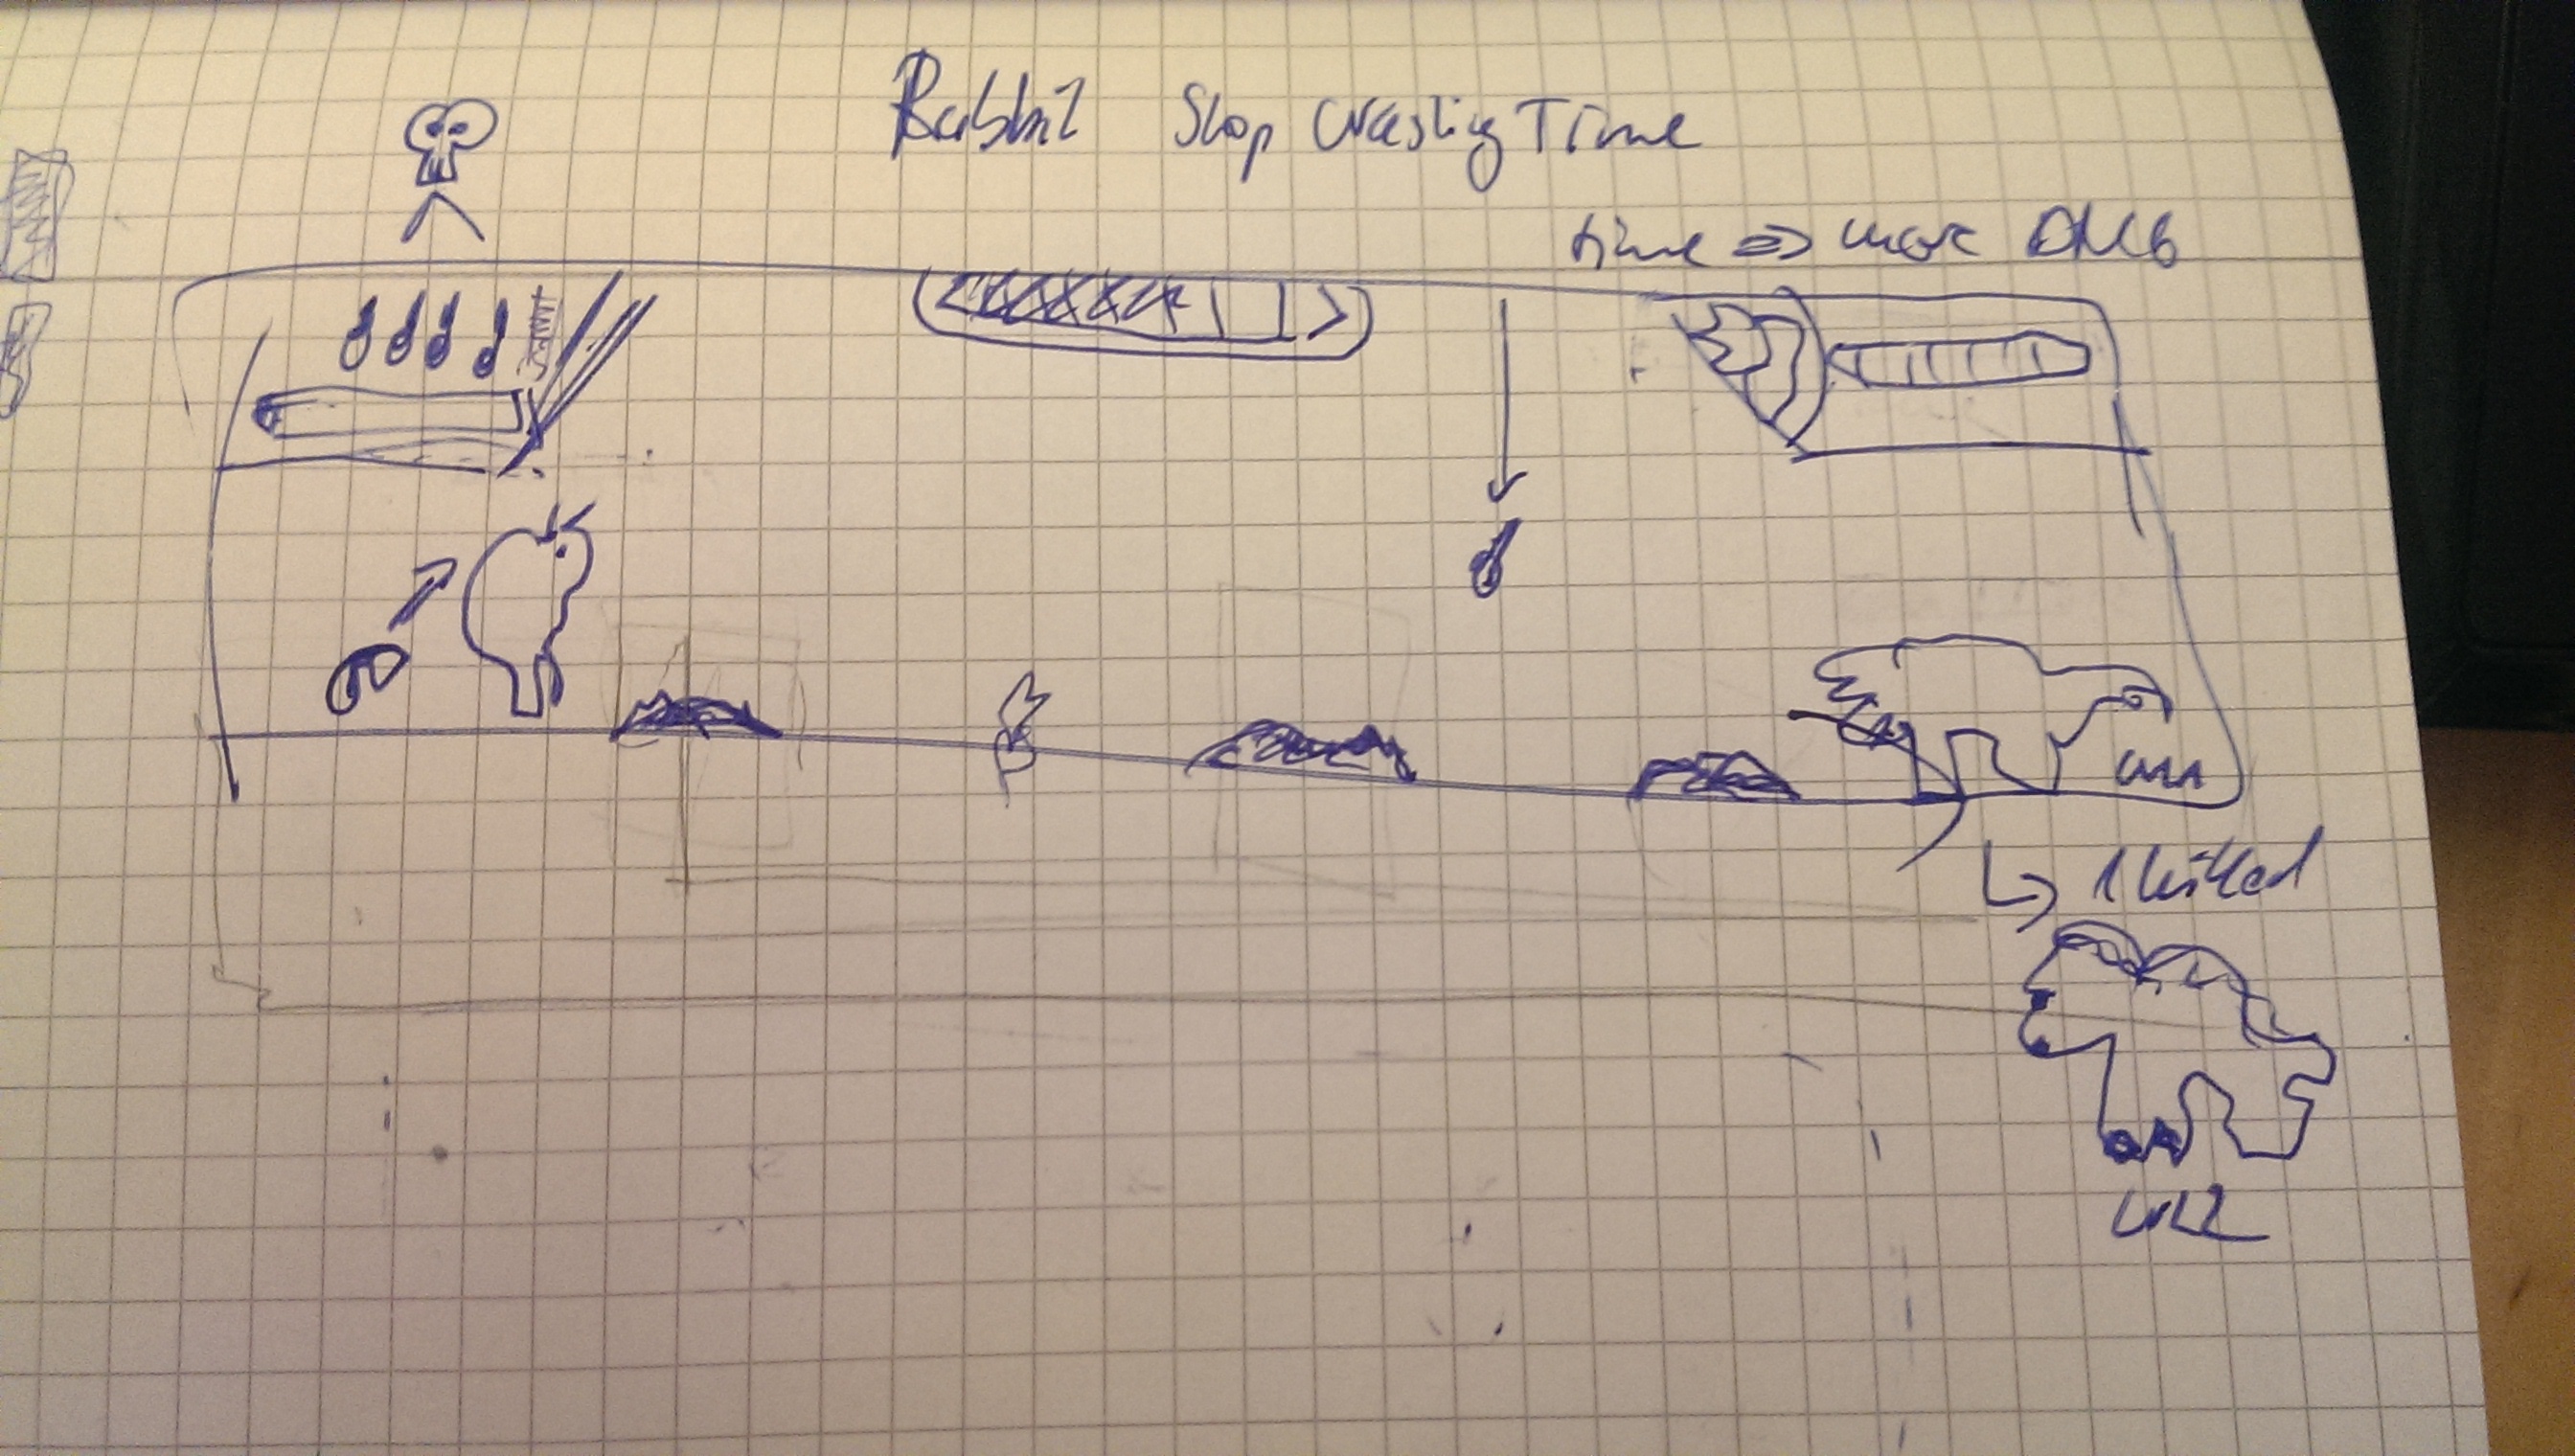 Rabbit Stop Wasting Time
time => more DMG
1 killed
LVL2